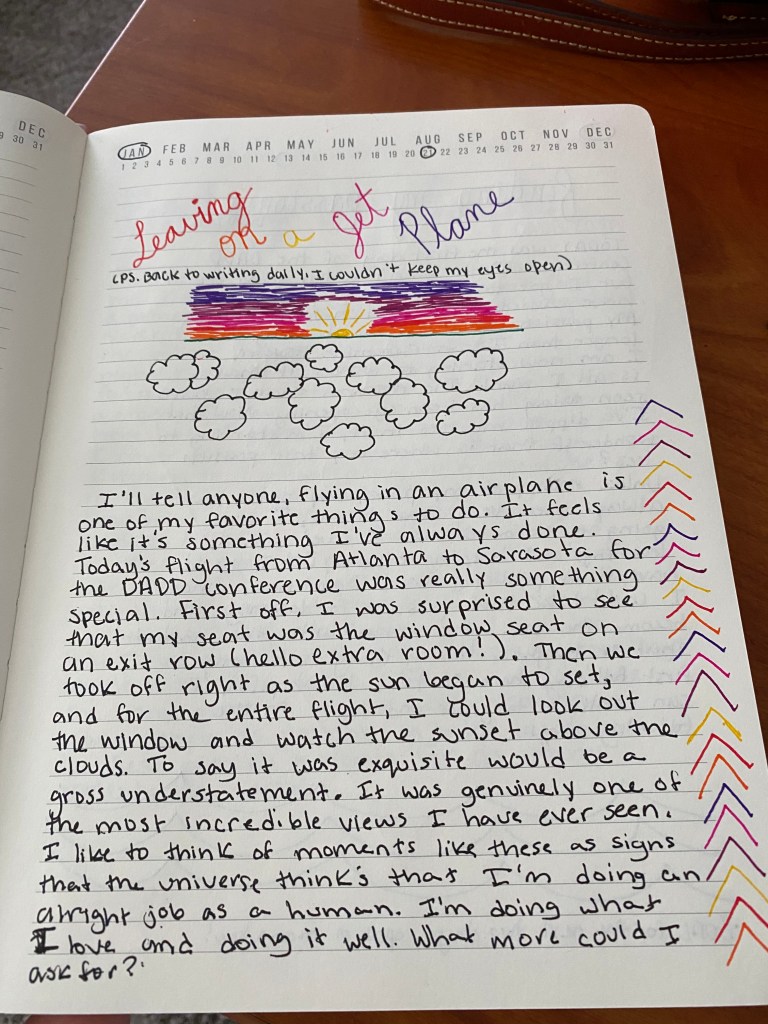 DEC
29 30 31
JAN FEB MAR APR MAY JUN JUL AUG SEP OCT NOV DEC
1 2 3 4 5 6 7 8 9 10 11 12 13 14 15 16 17 18 19 20 21 22 23 24 25 26 27 28 29 30 31
Leaving on a Jet Plane
(PS. Back to writing daily, I couldn't keep my eyes open)
I'll tell anyone, flying in an airplane is
one of my favorite things to do. It feels
like it's something I've always done.
Today's flight from Atlanta to Sarasota for
the DADD conference was really something
special. First off, I was surprised to see
that my seat was the window seat on
an exit row (hello extra room!). Then we
took off right as the sun began to set,
and for the entire flight, I could look out
the window and watch the sunset above the
clouds. To say it was exquisite would be a
gross understatement. It was genuinely one of
the most incredible views I have ever seen.
I like to think of moments like these as signs
that the universe think's that I'm doing an
alright job as a human. I'm doing what
I love and doing it well. What more could I
ask for?